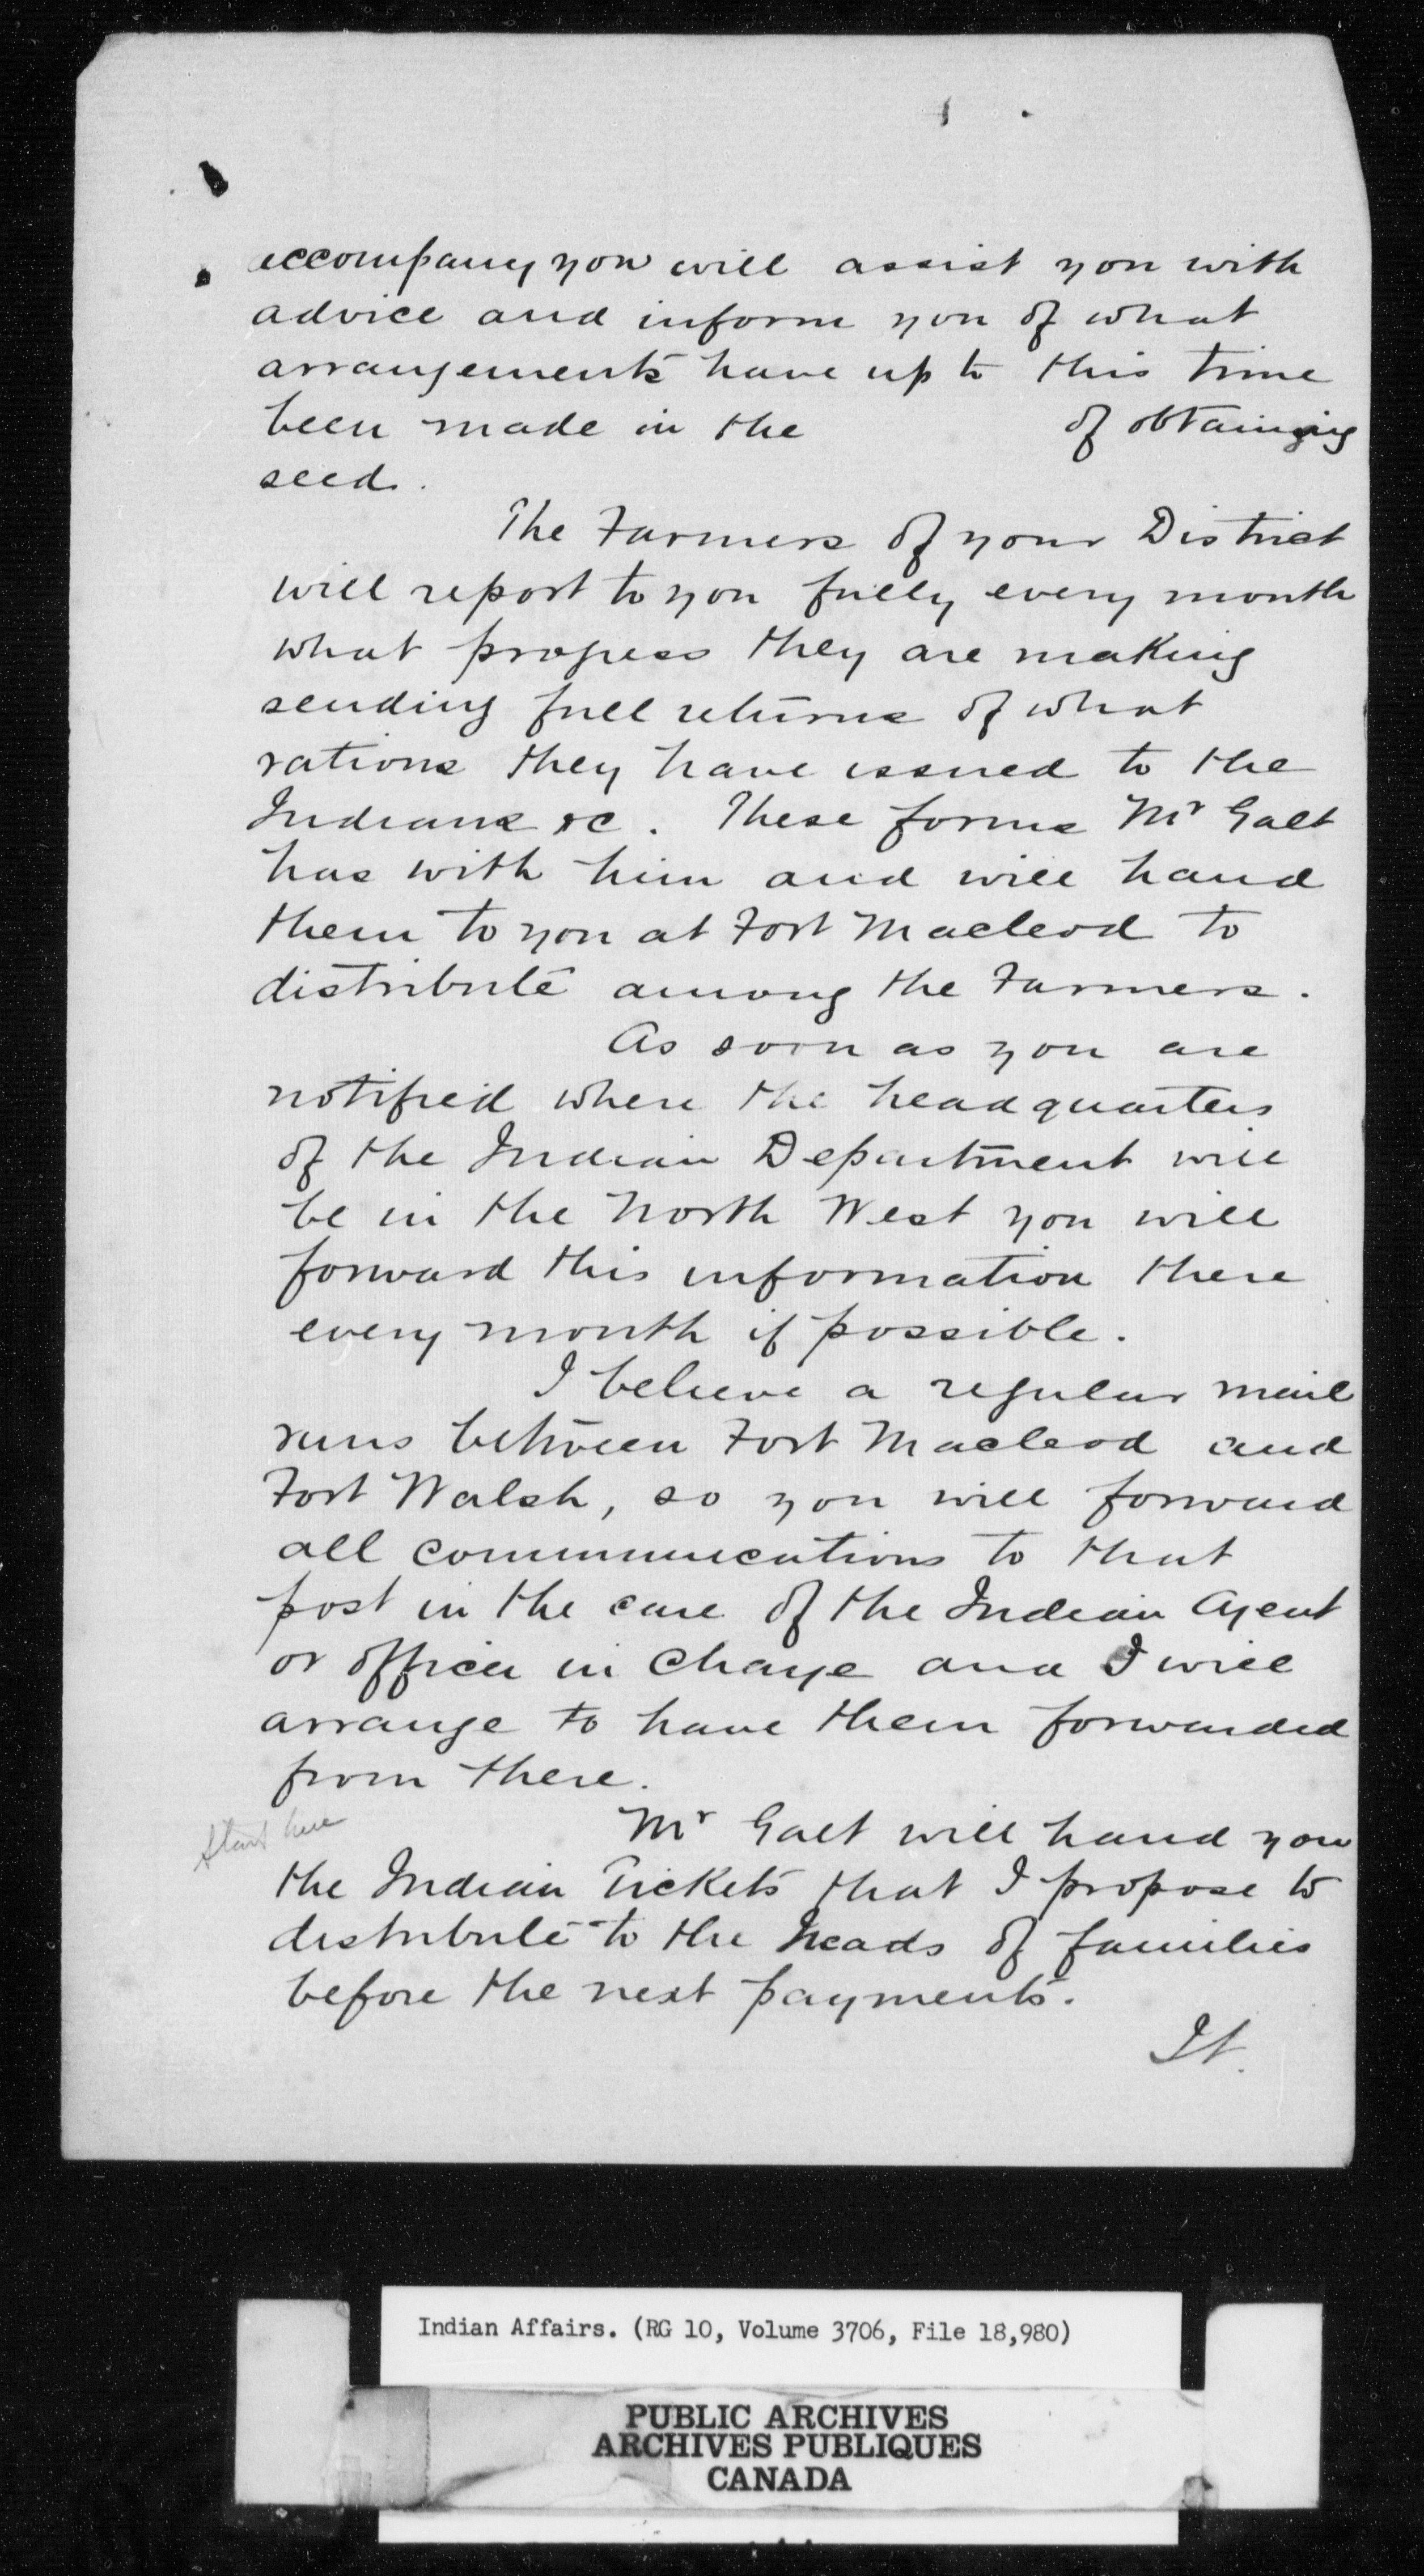 accompany you will assist you with
advice and inform you of what
arrangements have up to this time
been made in the of obtaining
seed.
The Farmers of your District
will report to you fully every month
what progress they are making
sending full returns of what
rations they have issued to the
Indians &c. These forms Mr Galt
has with him and will hand
them to you at Fort Macleod to
distribute among the Farmers.
As soon as you are
notified where the headquarters
of the Indian Department will
be in the North West you will
forward this information there
every month if possible.
I believe a regular mail
runs between Fort Macleod and
Fort Walsh, so you will forward
all communications to that
post in the care of the Indian Agent
or officer in charge and I will
arrange to have them forwarded
from there.
Start here
Mr Galt will hand you
the Indian Tickets that I propose to
distribute to the heads of families
before the next payments.
It
Indian Affairs. (RG 10, Volume 3706, File 18,980)
PUBLIC ARCHIVES
ARCHIVES PUBLIQUES
CANADA